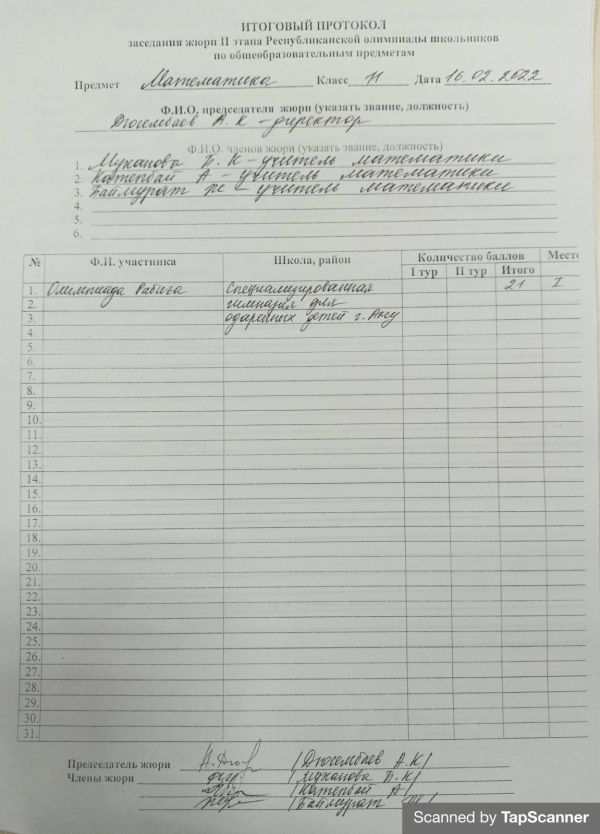 ИТОГОВЫЙ ПРОТОКОЛ
заседания жюри II этапа Республиканской олимпиады школьников
по общеобразовательным предметам
Предмет Математика Класс 11 Дата 16.02.2022
Ф.И.О. председателя жюри (указать звание, должность)
Дюсембаев А.К - директор
Ф.И.О. членов жюри (указать звание, должность)
1. Муканова Б. К - учитель математики
2. Катепбай А - учитель математики
3. Баймурат - учитель математики
4.
5.
6.
№ Ф.И. участника Школа, район Количество баллов Место
I тур II тур Итого
1. Олимпиада Рабига Специализированная 21 I
2. гимназия для
3. одаренных детей г. Аксу
4.
5.
6.
7.
8.
9.
10.
11.
12.
13.
14.
15.
16.
17.
18.
19.
20.
21.
22.
23.
24.
25.
26.
27.
28.
29.
30.
31.
Председатель жюри /Дюсембаев А.К/
Члены жюри /Муканова Б.К/
/Катепбай А/
/Баймурат /
Scanned by TapScanner